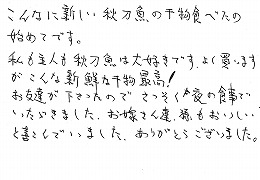 こんなに新しい秋刀魚の干物食べたの
始めてです。
私も主人も秋刀魚は大好きです。よく買いますが
こんな新鮮な干物最高!
お友達が下さったので さっそく夕夜の食事で
いただきました。お嫁さん達、孫もおいしい
と喜んでいました、ありがとうございました。